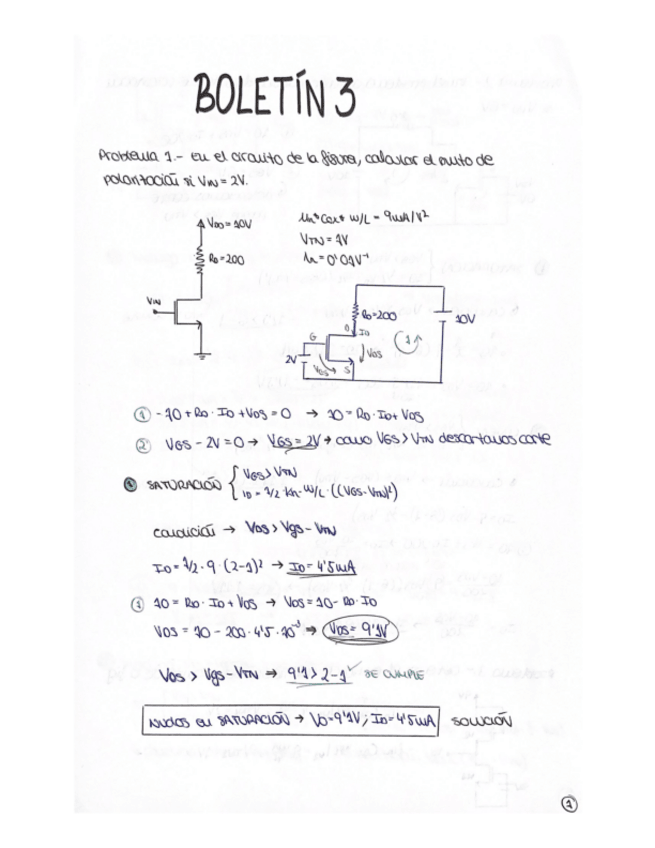 BOLETÍN 3
Problema 1.- en el circuito de la figura, calcular el punto de
polarización si VIN = 2V.
VDD = 10V
RD = 200
VIN
μn* Cox* W/L = 9mA/V²
VTN = 1V
λn = 0'01V⁻¹
RD = 200
10V
D
ID
G
1
VDS
2V
VGS
S
① -10 + RD · ID + VDS = 0 → 10 = RD · ID + VDS
② VGS - 2V = 0 → VGS = 2V → como VGS > VTN descartamos corte
SATURACIÓN { VGS > VTN
ID = 1/2 · kn · W/L · ((VGS - VTN)²)
condición → VDS > Vgs - VTN
ID = 1/2 · 9 · (2-1)² → ID = 4'5mA
① 10 = RD · ID + VDS → VDS = 10 - RD · ID
VDS = 10 - 200 · 4'5 · 10⁻³ → VDS = 9'1V
VDS > Vgs - VTN → 9'1 > 2-1 ✓ SE CUMPLE
NMOS en SATURACIÓN → VD = 9'1V ; ID = 4'5mA SOLUCIÓN
①